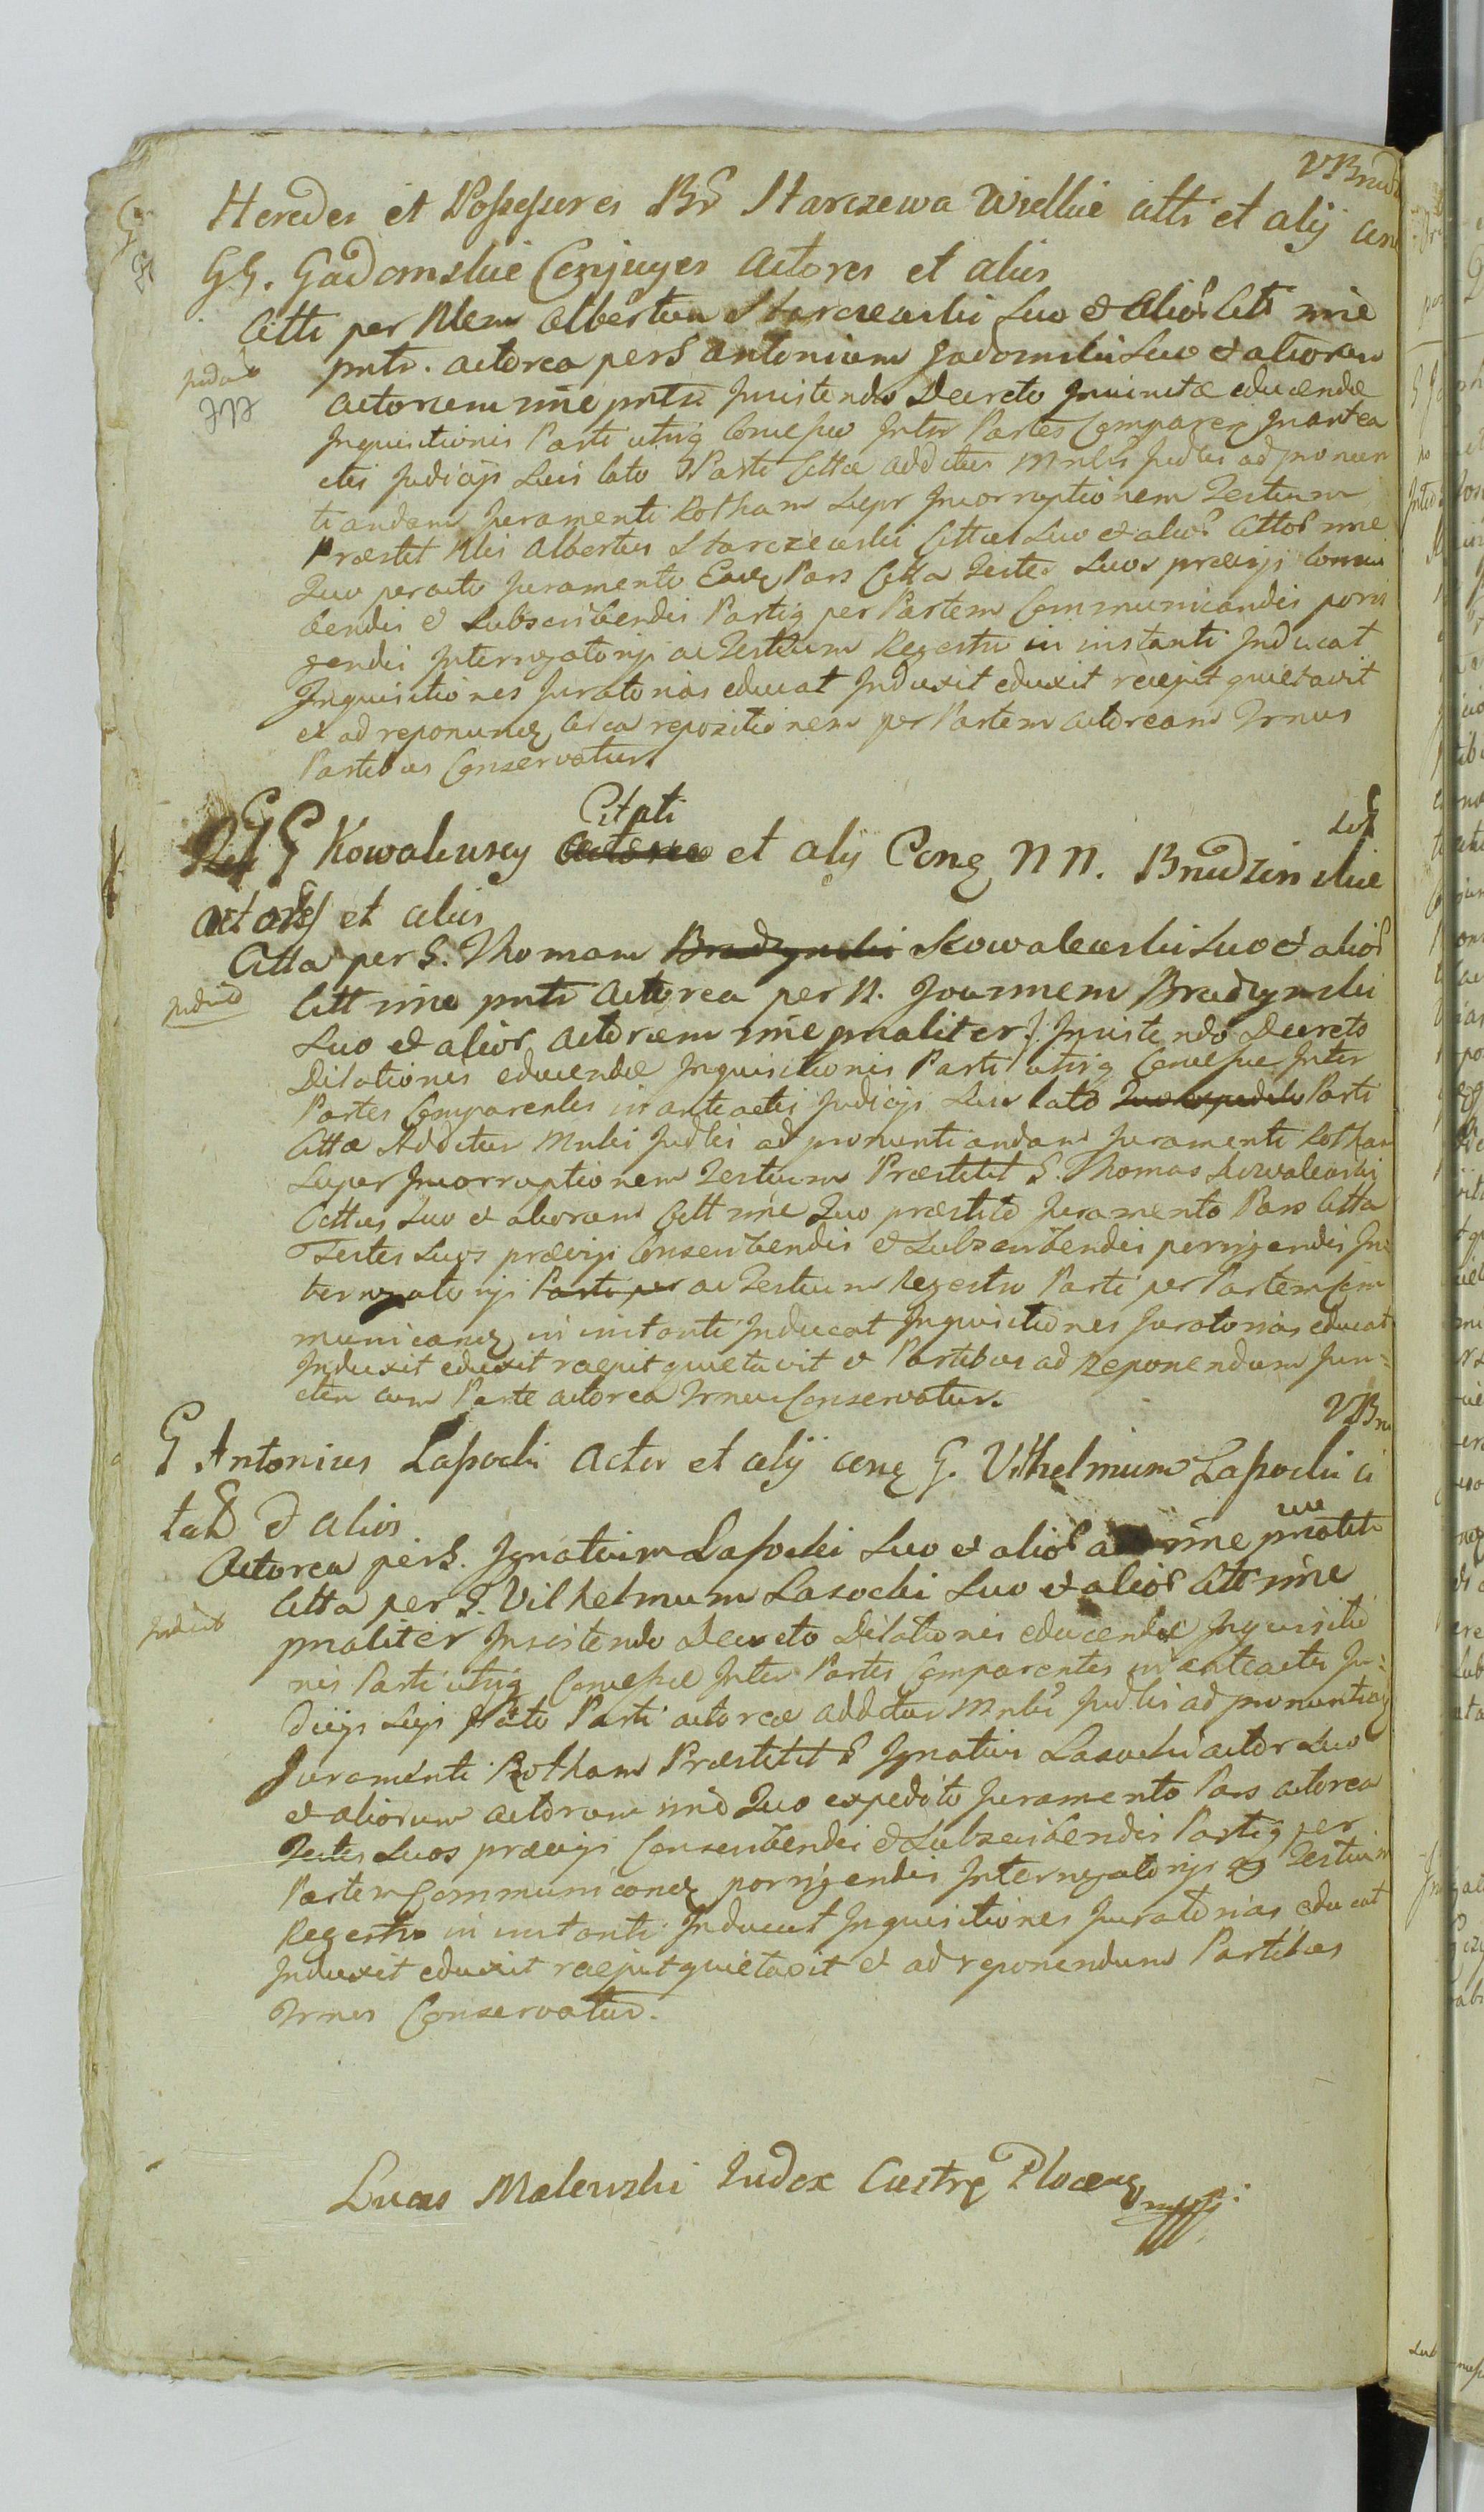 VBrud
Heredes et Possessores Br Starczewa Wielkie atti et alij con
GG. Gadomskie Conjuges Actores et alios
Citti per Nlem Albertum Starczewski suo et alior Citt nne
pntr. actorea per G Antonium Gadomski suo et aliorum
actorum nne pntr. Insistendo Decreto Inunctæ educendæ
Inquisitionis Parti utriq Concessæ Inter Partes Comparen in antea
ctis Judicijs suis lato Parti Cittæ additur Mnlis Judlis ad pronun
tiandam Juramenti Rotham super Incorruptionem Testium
Præstit Nlis Albertus Starczewski Cittus suo et alior Cittor nne
Quo peracto Juramento Eadq Pars Citta Testes suos prævijs Conscri
bendis et subscribendis Partiq per Partem Communicandis porri
gendis Interrogatorijs ac Testium Regestro in instanti Inducat
Inquisitiones Juratorias educat Induxit eduxit recepit quietavit
et ad reponendq circa repositionem per Partem actoream Trnus
Partibus Conservatur.
Citati
GG Kowalewscy actores et alij Conq NN. Brudzinskie
actores et alios
Citta per G. Thomam Bradzynski Kowalewski suo et alior
Judicat
Citt nne pntr Actorea per N. Joannem Bradzynski
suo et alior actorum nne pnaliter Insistendo Decreto
Dilationis educendæ Inquisitionis Parti utriq Concessæ Inter
Partes Comparentes in anteactis Judicijs suis lato Quo expedito Parti
Cittæ Additur Mnlis Judlis ad pronuntiandam Juramenti Rotham
super Incorruptionem Testium Præstitit G. Thomas Kowalewski
Cittus suo et aliorum Citt nne Quo præstito Juramento Pars Citta
Testes suos prævijs Conscribendis et subscribendis porrigendis In
terrogatorijs Parti per ac Testium Regestro Parti per Partem Com
municandq in instanti Inducat Inquisitiones Juratorias educat
Induxit eduxit recepit quietavit et Partibus ad Reponendum Jun=
ctim cum Parte actorea Trnus Conservatur.
VBru
G Antonius Lasocki Actor et alij conq G. Vilhelmum Lasocki ci
tatum et alios
Actorea per G. Ignatium Lasocki suo et alior nne pnalit
Citta per G. Vilhelmum Lasocki suo et alior Citt nne
Judicat
pnaliter Insistendo Decreto Dilationis educendæ Inquisitio
nis Parti utriq Concessæ Inter Partes Comparentes in anteactis Ju=
dicijs suis lato Parti actoreæ additur Mnlis Judlis ad pronuntiandq
Juramenti Rotham Præstitit G Ignatius Lasocki actor suo
et aliorum actorum nne Quo expedito Juramento Pars actorea
Testes suos prævijs Conscribendis et subscribendis Partiq per
Partem Communicandq porrigendis Interrogatorijs ac Testium
Regestro in instanti Inducat Inquisitiones Juratorias educat
Induxit eduxit recepit quietavit et ad reponendum Partibus
Trnus Conservatur.
Lucas Malewski Judex Castrq Plocenq mpp